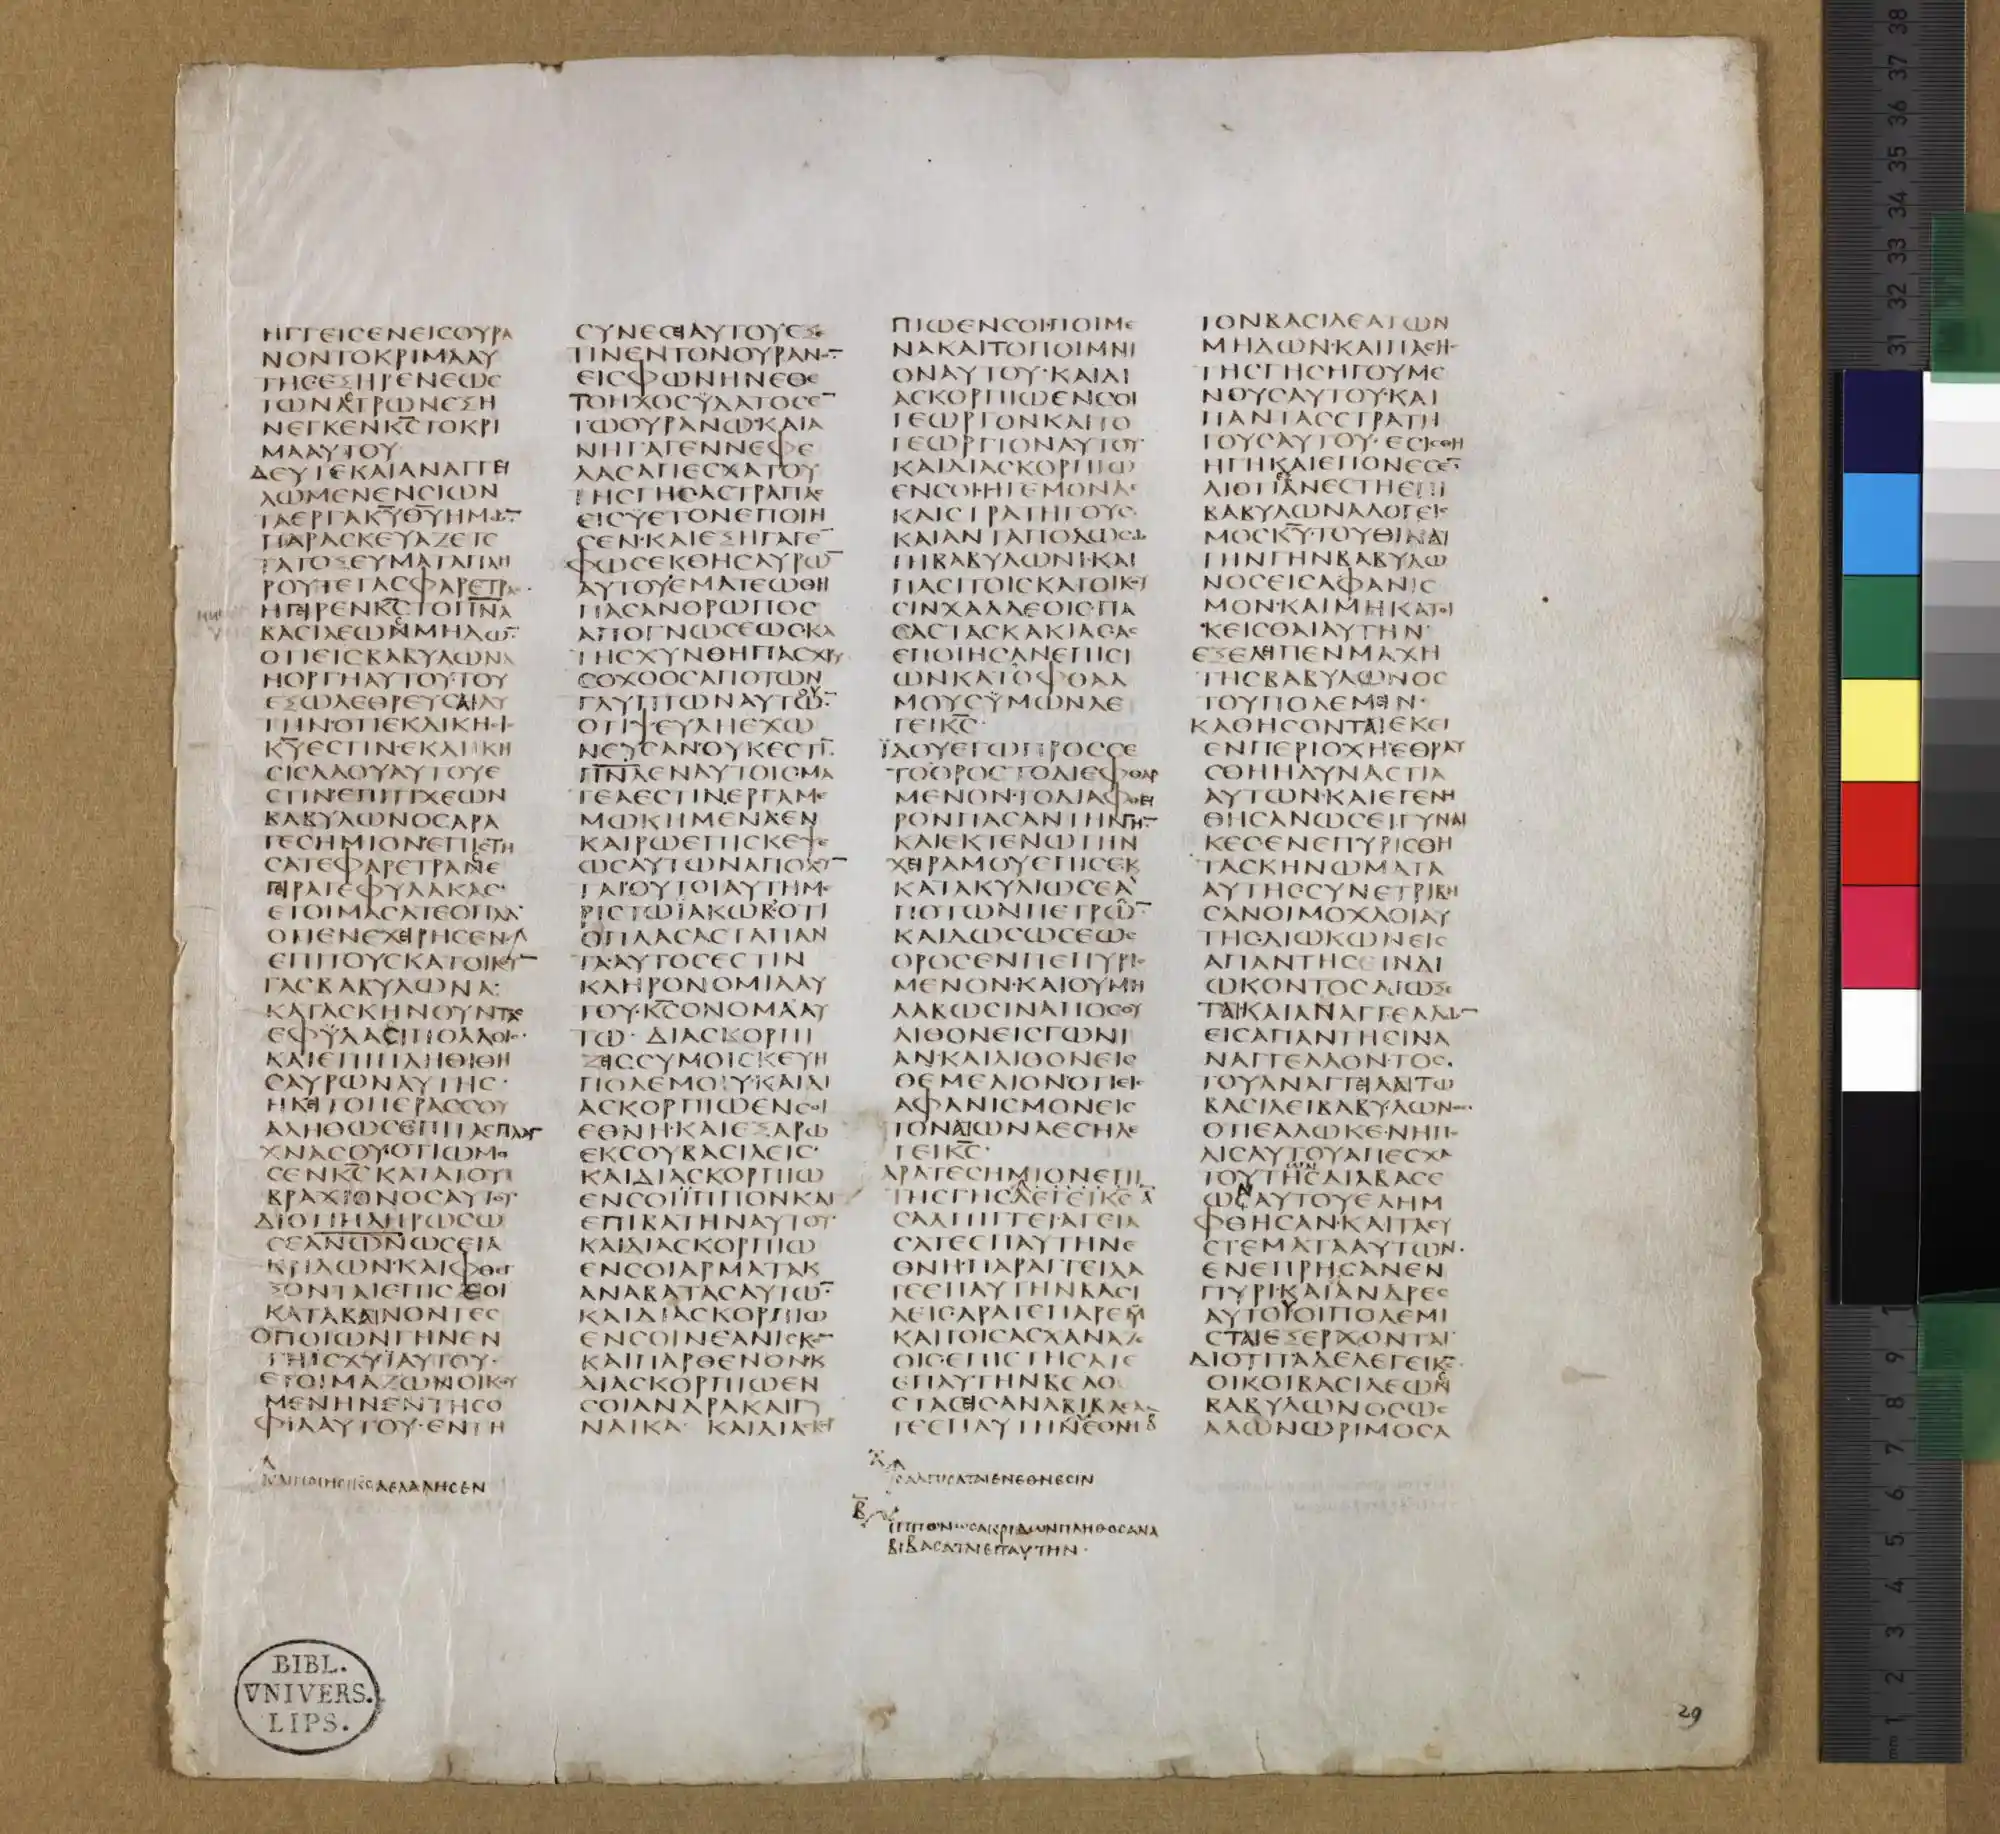 ΗΓΓΕΙϹΕΝΕΙϹΟΥΡΑ
ΝΟΝΤΟΚΡΙΜΑΑΥ
ΤΗϹΕΞΗΡΕΝΕΩϹ
ΤΩΝΑϹΤΡΩΝΕΞΗ
ΝΕΓΚΕΝΚ̅Ϲ̅ΤΟΚΡΙ
ΜΑΑΥΤΟΥ
ΔΕΥΤΕΚΑΙΑΝΑΓΓΕΙ
ΛΩΜΕΝΕΝϹΙΩΝ
ΤΑΕΡΓΑΚ̅Υ̅Θ̅Υ̅ΗΜΩ̅
ΠΑΡΑϹΚΕΥΑΖΕΤΕ
ΤΑΤΟΞΕΥΜΑΤΑΠΛΗ
ΡΟΥΤΕΤΑϹΦΑΡΕΤΡΑϹ
ΗΓΕΙΡΕΝΚ̅Ϲ̅ΤΟΠ̅Ν̅Α̅
ΒΑϹΙΛΕΩΝΜΗΔΩ̅
ΟΤΙΕΙϹΒΑΒΥΛΩΝΑ
ΗΟΡΓΗΑΥΤΟΥ·ΤΟΥ
ΕΞΩΛΕΘΡΕΥϹΑΙΑΥ
ΤΗΝ·ΟΤΙΕΚΔΙΚΗϹΙϹ
Κ̅Υ̅ΕϹΤΙΝ·ΕΚΔΙΚΗ
ϹΙϹΛΑΟΥΑΥΤΟΥΕ
ϹΤΙΝ·ΕΠΙΤΙΧΕΩΝ
ΒΑΒΥΛΩΝΟϹΑΡΑ
ΤΕϹΗΜΙΟΝ·ΕΠΙϹΤΗ
ϹΑΤΕΦΑΡΕΤΡΑΝΕ
ΓΕΙΡΑΤΕΦΥΛΑΚΑϹ·
ΕΤΟΙΜΑϹΑΤΕΟΠΛΑ
ΟΤΙΕΝΕΧΕΙΡΗϹΕΝ
ΕΠΙΤΟΥϹΚΑΤΟΙΚΟΥ̅
ΤΑϹΒΑΒΥΛΩΝΑ·
ΚΑΤΑϹΚΗΝΟΥΝΤΑϹ
ΕΦΫΔΑϹΙΠΟΛΛΟΙϹ
ΚΑΙΕΠΙΠΛΗΘΙΘΗ
ϹΑΥΡΩΝΑΥΤΗϹ·
ΗΚΕΙΤΟΠΕΡΑϹϹΟΥ
ΑΛΗΘΩϹΕΠΙΤΑϹΠΛΑΓ
ΧΝΑϹΟΥ·ΟΤΙΩΜΟ
ϹΕΝΚ̅Ϲ̅ΚΑΤΑΤΟΥ
ΒΡΑΧΙΟΝΟϹΑΥΤΟΥ
ΔΙΟΤΙΠΛΗΡΩϹΩ
ϹΕΑΝΩΝΩϹΕΙΑ
ΚΡΙΔΩΝ·ΚΑΙΦΘΕΓ
ΞΟΝΤΑΙΕΠΙϹΕΟΙ
ΚΑΤΑΒΑΙΝΟΝΤΕϹ
ΟΠΟΙΩΝΓΗΝΕΝ
ΤΗΙϹΧΥΪΑΥΤΟΥ·
ΕΤΟΙΜΑΖΩΝΟΙΚΟΥ
ΜΕΝΗΝΕΝΤΗϹΟ
ΦΙΑΑΥΤΟΥ·ΕΝΤΗ
ΚΑΙΠΟΙΗϹΕΙΚ̅Ϲ̅ΑΕΛΑΛΗϹΕΝ
ϹΥΝΕϹΕΙΑΥΤΟΥΕΞΕ
ΤΙΝΕΝΤΟΝΟΥΡΑΝΟ̅
ΕΙϹΦΩΝΗΝΕΘΕ
ΤΟΗΧΟϹΫΔΑΤΟϹΕ̅
ΤΩΟΥΡΑΝΩ·ΚΑΙΑ
ΝΗΓΑΓΕΝΝΕΦΕ
ΛΑϹΑΠΕϹΧΑΤΟΥ
ΤΗϹΓΗϹ·ΑϹΤΡΑΠΑϹ
ΕΙϹΫΕΤΟΝΕΠΟΙΗ
ϹΕΝ·ΚΑΙΕΞΗΓΑΓΕ̅
ΦΩϹΕΚΘΗϹΑΥΡΩ̅
ΑΥΤΟΥ·ΕΜΑΤΕΩΘΗ
ΠΑϹΑΝΟΡΩΠΟϹ
ΑΠΟΓΝΩϹΕΩϹ·ΚΑ
ΤΗϹΧΥΝΘΗΠΑϹΧΡΥ
ϹΟΧΟΟϹΑΠΟΤΩΝ
ΓΛΥΠΤΩΝΑΥΤΟΥ
ΟΤΙΨΕΥΔΗΕΧΩ
ΝΕΥϹΑΝ·ΟΥΚΕϹΤΙ̅
Π̅Ν̅Α̅ΕΝΑΥΤΟΙϹΜΑ
ΤΕΑΕϹΤΙΝ·ΕΡΓΑΜΕ
ΜΩΚΗΜΕΝΑΕΝ
ΚΑΙΡΩΕΠΙϹΚΕΨΕ
ΩϹΑΥΤΩΝΑΠΟΛΟΥ̅
ΤΑΙΟΥΤΟΙΑΥΤΗΜΕ
ΡΙϹΤΩΪΑΚΩΒ·ΟΤΙ
ΟΠΛΑϹΑϹΤΑΠΑΝ
ΤΑ·ΑΥΤΟϹΕϹΤΙΝ
ΚΛΗΡΟΝΟΜΙΑΑΥ
ΤΟΥ·Κ̅Ϲ̅ΟΝΟΜΑΑΥ
ΤΩ· ΔΙΑϹΚΟΡΠΙ
ΖΕΙϹϹΥΜΟΙϹΚΕΥΗ
ΠΟΛΕΜΟΥ·ΚΑΙΔΙ
ΑϹΚΟΡΠΙΩΕΝϹΟΙ
ΕΘΝΗ·ΚΑΙΕΞΑΡΩ
ΕΚϹΟΥΒΑϹΙΛΕΙϹ·
ΚΑΙΔΙΑϹΚΟΡΠΙΩ
ΕΝϹΟΙΪΠΠΟΝΚΑΙ
ΕΠΙΒΑΤΗΝΑΥΤΟΥ
ΚΑΙΔΙΑϹΚΟΡΠΙΩ
ΕΝϹΟΙΑΡΜΑΤΑΚ
ΑΝΑΒΑΤΑϹΑΥΤΩ̅
ΚΑΙΔΙΑϹΚΟΡΠΙΩ
ΕΝϹΟΙΝΕΑΝΙϹΚΟ̅
ΚΑΙΠΑΡΘΕΝΟΝ·Κ
ΔΙΑϹΚΟΡΠΙΩΕΝ
ϹΟΙΑΝΔΡΑΚΑΙΓΥ
ΝΑΙΚΑ· ΚΑΙΔΙΑϹΚΡ
ΠΙΩΕΝϹΟΙ·ΠΟΙΜΕ
ΝΑΚΑΙΤΟΠΟΙΜΝΙ
ΟΝΑΥΤΟΥ·ΚΑΙΔΙ
ΑϹΚΟΡΠΙΩΕΝϹΟΙ
ΓΕΩΡΓΟΝΚΑΙΤΟ
ΓΕΩΡΓΙΟΝΑΥΤΟΥ
ΚΑΙΔΙΑϹΚΟΡΠΙΩ
ΕΝϹΟΙ·ΗΓΕΜΟΝΑϹ
ΚΑΙϹΤΡΑΤΗΓΟΥϹ
ΚΑΙΑΝΤΑΠΟΔΩϹΩ
ΤΗΒΑΒΥΛΩΝΙ·ΚΑΙ
ΠΑϹΙΤΟΙϹΚΑΤΟΙΚΟΥ
ϹΙΝΧΑΛΔΕΟΙϹ·ΠΑ
ϹΑϹΤΑϹΚΑΚΙΑϹΑϹ
ΕΠΟΙΗϹΑΝΕΠΙϹΙ
ΩΝΚΑΤΟΦΘΑΛ
ΜΟΥϹΫΜΩΝΛΕ
ΓΕΙΚ̅Ϲ̅·
ΪΔΟΥΕΓΩΠΡΟϹϹΕ
ΤΟΟΡΟϹΤΟΔΙΕΦΘΑΡ
ΜΕΝΟΝ·ΤΟΔΙΑΦΘΕΙ
ΡΟΝΠΑϹΑΝΤΗΝΓΗ̅
ΚΑΙΕΚΤΕΝΩΤΗΝ
ΧΕΙΡΑΜΟΥΕΠΙϹΕΚ
ΚΑΤΑΚΥΛΙΩϹΕΑ
ΠΟΤΩΝΠΕΤΡΩ̅
ΚΑΙΔΩϹΩϹΕΩϹ
ΟΡΟϹΕΝΠΕΠΥΡΙϹ
ΜΕΝΟΝ·ΚΑΙΟΥΜΗ
ΛΑΒΩϹΙΝΑΠΟϹΟΥ
ΛΙΘΟΝΕΙϹΓΩΝΙ
ΑΝ·ΚΑΙΛΙΘΟΝΕΙϹ
ΘΕΜΕΛΙΟΝ·ΟΤΙΕΙϹ
ΑΦΑΝΙϹΜΟΝΕΙϹ
ΤΟΝΑΙΩΝΑΕϹΗΛΕ
ΓΕΙΚ̅Ϲ̅·
ΑΡΑΤΕϹΗΜΙΟΝΕΠΙ
ΤΗϹΓΗϹΛΕΓΕΙΚ̅Ϲ̅
ϹΑΛΠΙΓΓΕΙ·ΑΓΕΙΑ
ϹΑΤΕϹΠΑΥΤΗΝΕ
ΘΝΗ·ΠΑΡΑΓΓΕΙΛΑ
ΤΕΕΠΑΥΤΗΝΒΑϹΙ
ΛΕΙϹ·ΑΡΑΤΕΠΑΡΕΜ̅
ΚΑΙΤΟΙϹΑϹΧΑΝΑΖ
ΟΙϹ·ΕΠΙϹΤΗϹΑΤΕ
ΕΠΑΥΤΗΝΒΕΛΟ
ϹΤΑϹΕΙϹΑΝΑΒΙΒΑϹΑ
ΤΕΕΠΑΥΤΗΝΪ
ϹΑΛΠΙϹΑΤΑΙΕΝΕΘΝΕϹΙΝ
Β ΙΠΠΟΝΩϹΑΚΡΙΔΩΝΠΛΗΘΟϹΑΝΑ
ΒΙΒΑϹΑΤΑΙΕΠΑΥΤΗΝ·
ΤΟΝΒΑϹΙΛΕΑΤΩΝ
ΜΗΔΩΝ·ΚΑΙΠΑϹΗϹ
ΤΗϹΓΗϹΗΓΟΥΜΕ
ΝΟΥϹΑΥΤΟΥ·ΚΑΙ
ΠΑΝΤΑϹϹΤΡΑΤΗ
ΓΟΥϹΑΥΤΟΥ·ΕϹΙϹΘΗ
ΗΓΗΚΑΙΕΠΟΝΕϹΕ̅
ΔΙΟΤΙΑΝΕϹΤΗΕΠΙ
ΒΑΒΥΛΩΝΑΛΟΓΕΙϹ
ΜΟϹΚ̅Υ̅ΤΟΥΘΙΝΑΙ
ΤΗΝΓΗΝΒΑΒΥΛΩ
ΝΟϹΕΙϹΑΦΑΝΙϹ
ΜΟΝ·ΚΑΙΜΗΚΑΤΟΙ
ΚΕΙϹΘΑΙΑΥΤΗΝ·
ΕΞΕΛΕΙΠΕΝΜΑΧΗ
ΤΗϹΒΑΒΥΛΩΝΟϹ
ΤΟΥΠΟΛΕΜΕΙΝ·
ΚΑΘΗϹΟΝΤΑΙΕΚΕΙ
ΕΝΠΕΡΙΟΧΗ·ΕΘΡΑΥ
ϹΘΗΗΔΥΝΑϹΤΙΑ
ΑΥΤΩΝ·ΚΑΙΕΓΕΝΗ
ΘΗϹΑΝΩϹΕΙΓΥΝΑΙ
ΚΕϹΕΝΕΠΥΡΙϹΘΗ
ΤΑϹΚΗΝΩΜΑΤΑ
ΑΥΤΗϹϹΥΝΕΤΡΙΒΗ
ϹΑΝΟΙΜΟΧΛΟΙΑΥ
ΤΗϹ·ΔΙΩΚΩΝΕΙϹ
ΑΠΑΝΤΗϹΕΙΝΔΙ
ΩΚΟΝΤΟϹΔΙΩΞΕ
ΤΑΙΚΑΙΑΝΑΓΓΕΛΛΩ̅
ΕΙϹΑΠΑΝΤΗϹΙΝΑ
ΝΑΓΓΕΛΛΟΝΤΟϹ·
ΤΟΥΑΝΑΓΓΕΙΛΑΙΤΩ
ΒΑϹΙΛΕΙΒΑΒΥΛΩΝΟϹ
ΟΤΙΕΑΛΩΚΕΝΗΠΟ
ΛΙϹΑΥΤΟΥΑΠΕϹΧΑ
ΤΟΥΤΗϹΔΙΑΒΑϹΕ
ΩϹΑΥΤΟΥΕΛΗΜ
ΦΘΗϹΑΝ·ΚΑΙΤΑϹΥ
ϹΤΕΜΑΤΑΑΥΤΩΝ·
ΕΝΕΠΡΗϹΑΝΕΝ
ΠΥΡΙ·ΚΑΙΑΝΔΡΕϹ
ΑΥΤΟΥΟΙΠΟΛΕΜΙ
ϹΤΑΙΕΞΕΡΧΟΝΤΑΙ
ΔΙΟΤΙΤΑΔΕΛΕΓΕΙΚ̅Ϲ̅
ΟΙΚΟΙΒΑϹΙΛΕΩΝ
ΒΑΒΥΛΩΝΟϹΩϹ
ΑΛΩΝΩΡΙΜΟϹΑ
BIBL.
VNIVERS.
LIPS.
29